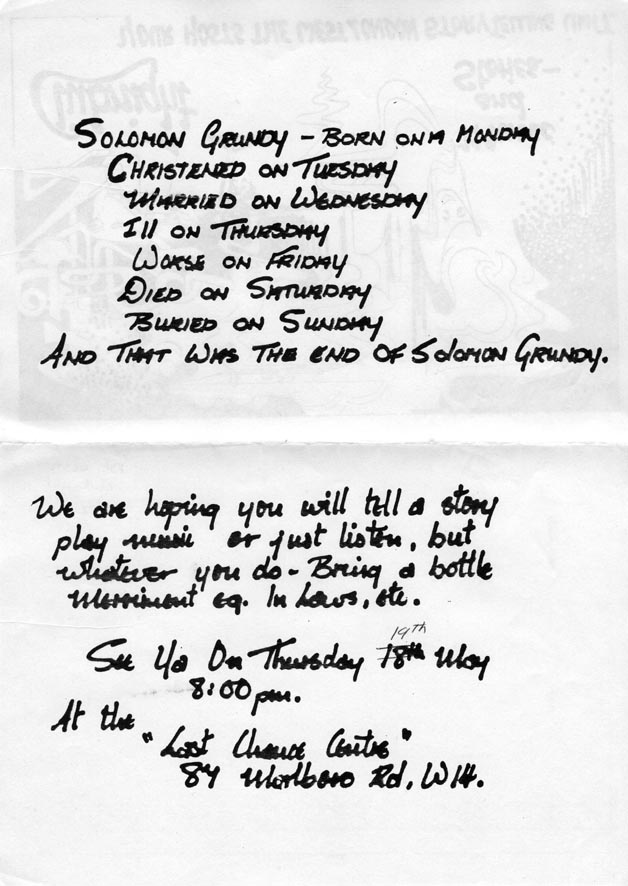 SOLOMON GRUNDY – BORN ON A MONDAY
CHRISTENED ON TUESDAY
MARRIED ON WEDNESDAY
Ill ON THURSDAY
WORSE ON FRIDAY
DIED ON SATURDAY
BURIED ON SUNDAY
AND THAT WAS THE END OF SOLOMON GRUNDY.
We are hoping you will tell a story
play music or just listen, but
whatever you do - Bring a bottle
Merriment eg. In Laws, etc.
See Ya On Thursday 18th 19th May
8:00 pm.
At the
"Last Chance Centre"
87 Marlboro Rd, W14.